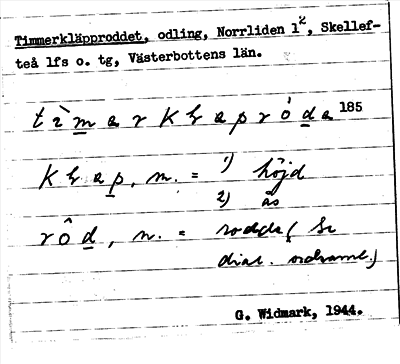 Timmerkläpproddet, odling, Norrliden 1², Skellef-
teå lfs o. tg, Västerbottens län.
tìmarklapróda 185
klap, m. = 1) höjd
2) ås
rôd, n. = rodda (se
dial. ordsaml.)
G. Widmark, 1944.